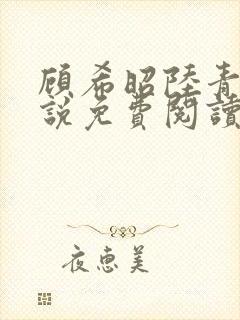 顧希昭陸青
說免費閱讀
夜惠美